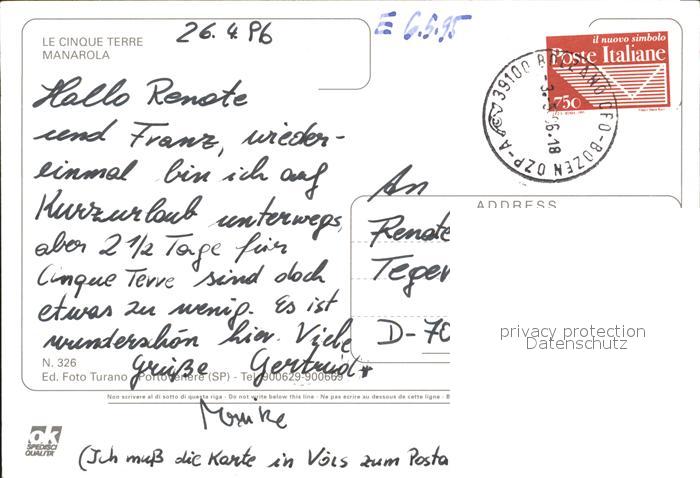 26.4.96
E 6.5.95
LE CINQUE TERRE
MANAROLA
il nuovo simbolo
Poste Italiane
750
39100 BOLZANO CPO-BOZEN OZP-A
Hallo Renate
und Franz, wieder-
einmal bin ich auf
Kurzurlaub unterwegs,
aber 2 1/2 Tage für
Cinque Terre sind doch
etwas zu wenig. Es ist
wunderschön hier. Viele
Grüße Gertrud +
Monika
(Ich muß die Karte in Völs zum Posta
ADDRESS
An
Renate
Teger
D-70
privacy protection
Datenschutz
N. 326
Ed. Foto Turano - Portovenere (SP) - Tel. 900629-900669
Non scrivere al di sotto di questa riga - Do not write below this line - Ne pas ecrire au dessous de cette ligne - B
ak
SPEDISCI
QUALITA'